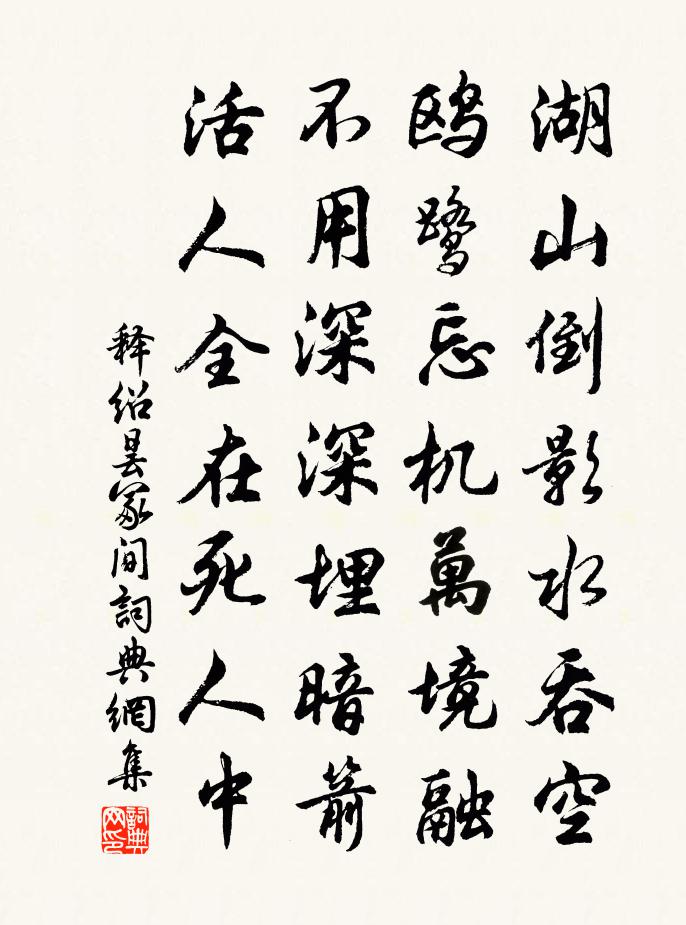 湖山倒影水吞空
鸥鹭忘机萬境融
不用深深埋暗箭
活人全在死人中
释绍昙冢间詞典網集
詞典网印